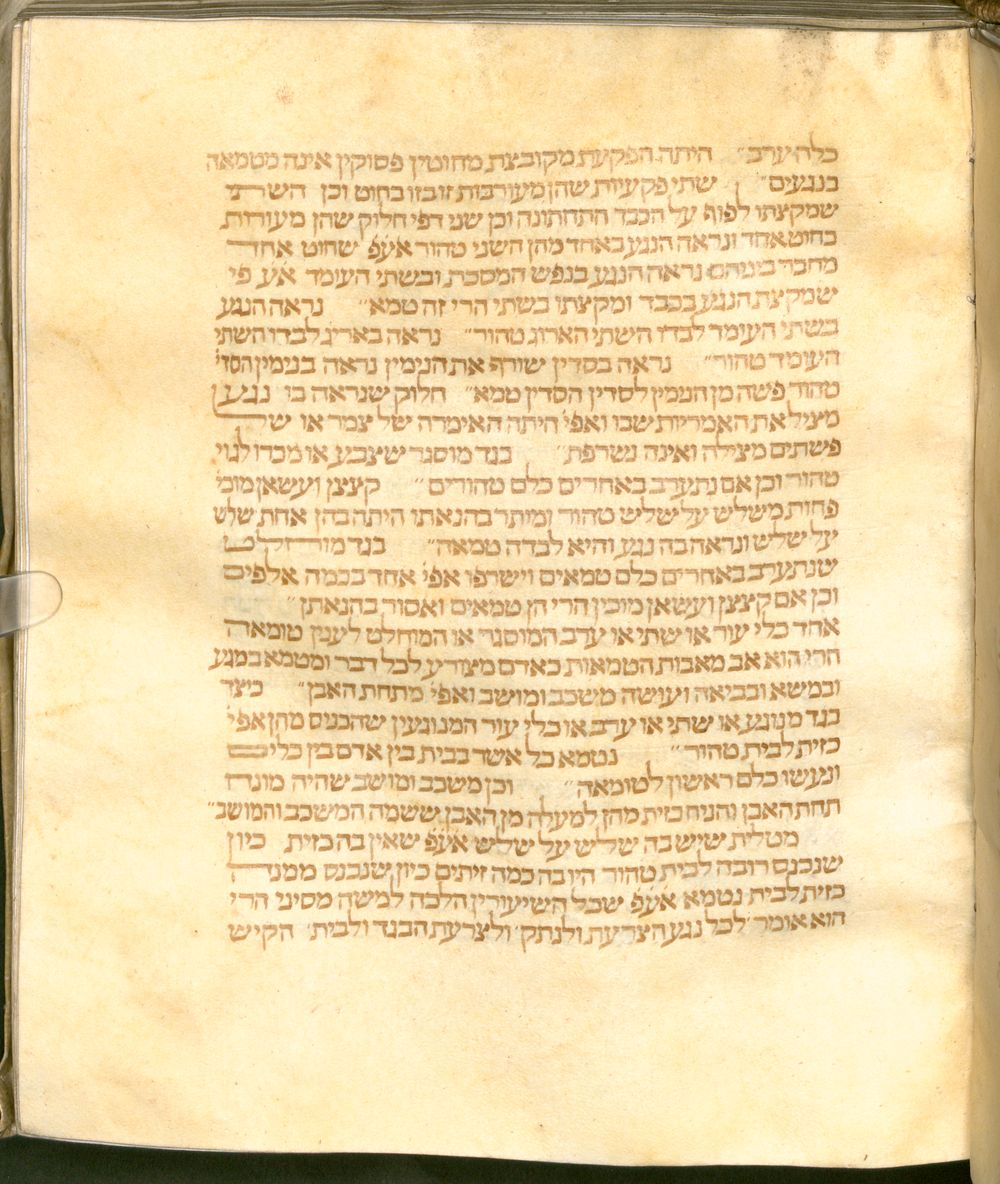 כלה ערב״ היתה הפקעת מקובצת מחוטין פסוקין אינה מטמאה
בנגעים״ שתי פקעיות שהן מעורבות זו בזו בחוט וכן השתי
שמקצתו לפוף על הכבד התחתונה וכן שני דפי חלוק שהן מעורות
בחוט אחד ונראה הנגע באחד מהן השני טהור אע״פ שחוט אחד
מחבר ביניהם נראה הנגע בנפש המסכת ובשתי העומד אע פי
שמקצת הנגע בכבד ומקצתו בשתי הרי זה טמא״ נראה הנגע
בשתי העומד לבדו השתי הארוג טהור״ נראה באריג לבדו השתי
העומד טהור״ נראה בסדין שורף את הנימין נראה בנימין הסדי׳
טהור פשה מן הנמין לסדין הסדין טמא״ חלוק שנראה בו נגע
מציל את האמריות שבו ואפי׳ היתה האימרה של צמר או של
פשתים מצילה ואינה נשרפת״ בגד מוסגר שצבעו או מכרו לגוי
טהור וכן אם נתערב באחרים כלם טהורים״ קצצן ועשאן מוכי׳
פחות משלש על שלש טהור ומותר בהנאתו היתה בהן אחת שלש
על שלש ונראה בה נגע והיא לבדה טמאה״ בגד מוחלט
שנתערב באחרים כלם טמאים וישרפו אפי׳ אחד בכמה אלפים
וכן אם קצצן ועשאן מוכין הרי הן טמאים ואסור בהנאתן״
אחד כלי עור או שתי או ערב המוסגר או המוחלט לענין טומאה
הרי הוא אב מאבות הטמאות כאדם מצורע לכל דבר ומטמא במגע
ובמשא ובביאה ועושה משכב ומושב ואפי׳ מתחת האבן״ כיצד
בגד מנוגע או שתי או ערב או כלי עור המנוגעין שהכניס מהן אפי׳
כזית לבית טהור״ נטמא כל אשר בבית בין אדם בין כלים
ונעשו כלם ראשון לטומאה״ וכן משכב ומושב שהיה מונח
תחת האבן והניח כזית מהן למעלה מן האבן ששמה המשכב והמושב״
מטלית שיש בה שלש על שלש אע״פ שאין בה כזית כיון
שנכנס רובה לבית טהור היו בה כמה זיתים כיון שנכנס ממנה
כזית לבית נטמא אע״פ שכל השיעורין הלכה למשה מסיני הרי
הוא אומר לכל נגע הצרעת ולנתק׳ ולצרעת הבגד ולבית׳ הקיש